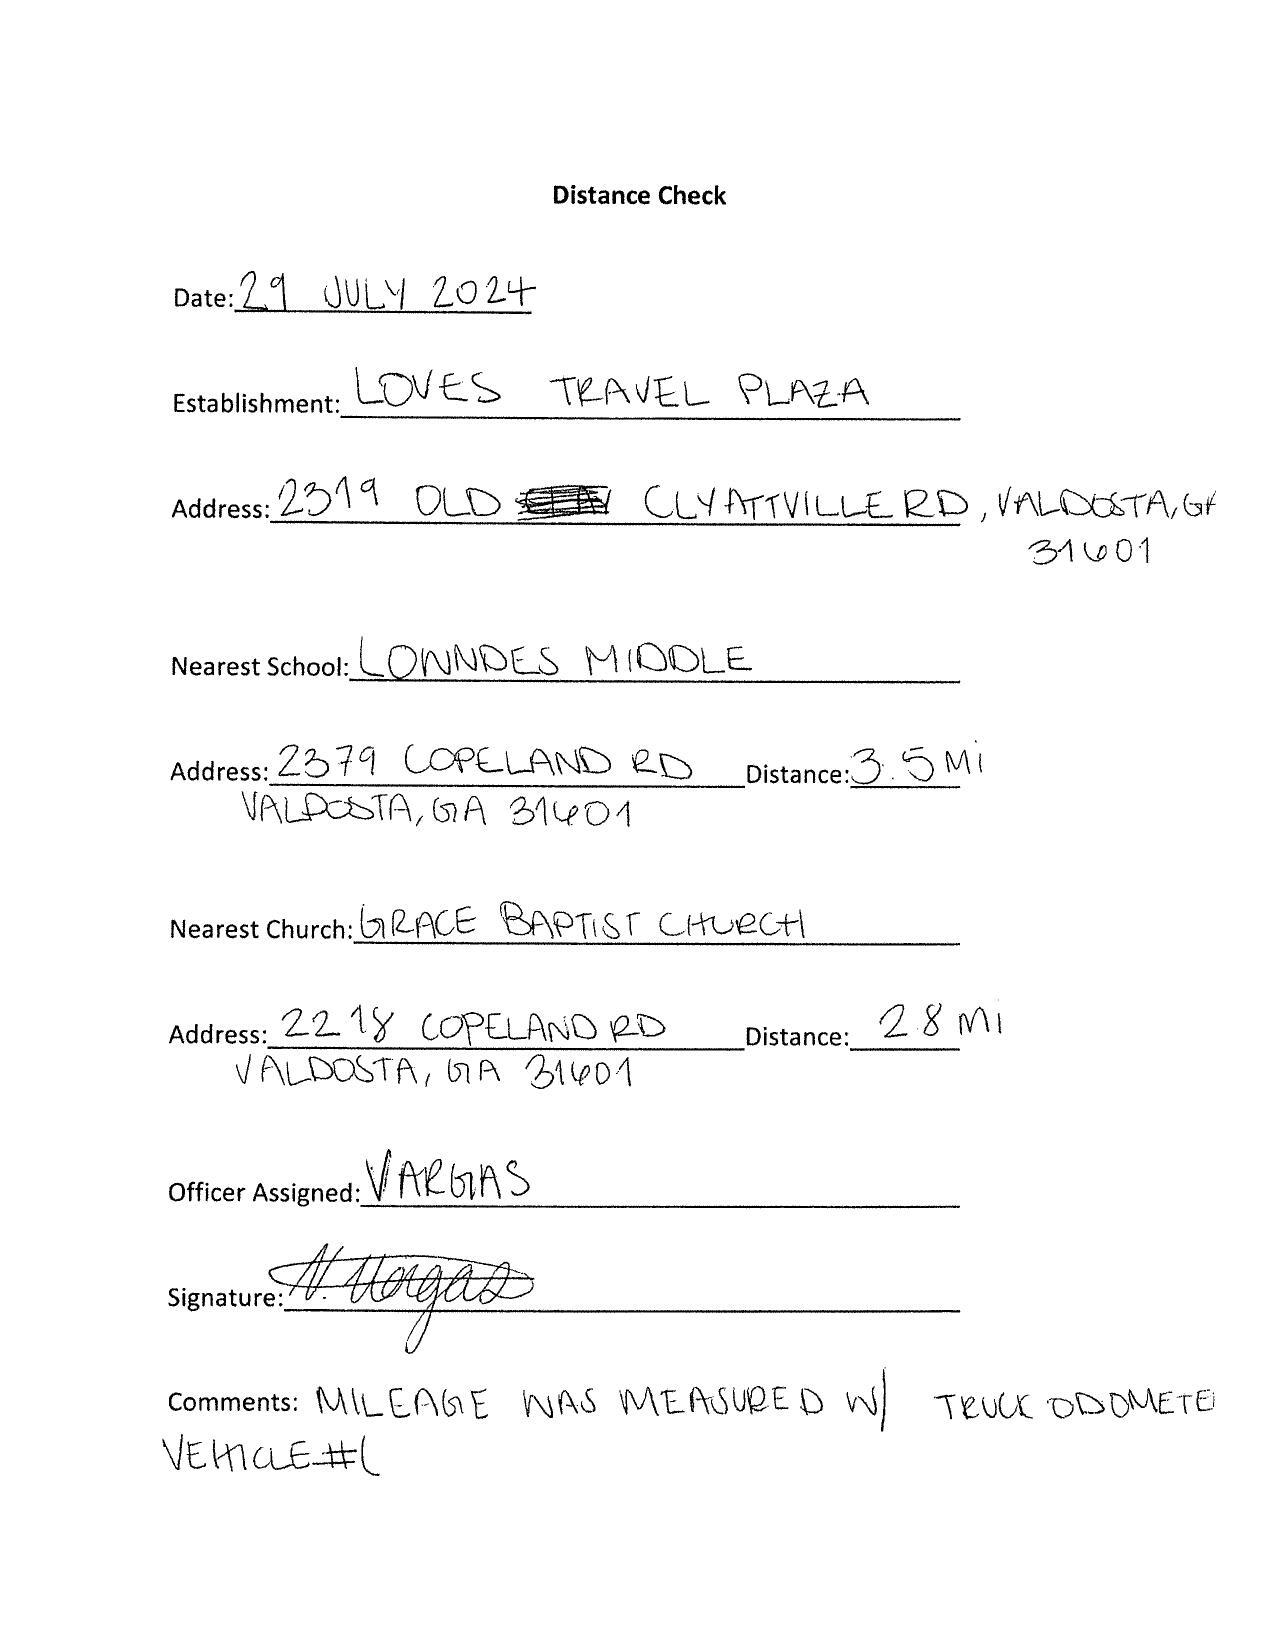 Distance Check
Date: 29 JULY 2024
Establishment: LOVES TRAVEL PLAZA
Address: 2319 OLD CLYATTVILLE RD, VALDOSTA, GA
31601
Nearest School: LOWNDES MIDDLE
Address: 2379 COPELAND RD Distance: 3.5 MI
VALDOSTA, GA 31601
Nearest Church: GRACE BAPTIST CHURCH
Address: 2218 COPELAND RD Distance: 2.8 MI
VALDOSTA, GA 31601
Officer Assigned: VARGAS
Signature: N. Vargas
Comments: MILEAGE WAS MEASURED W/ TRUCK ODOMETE
VEHICLE #